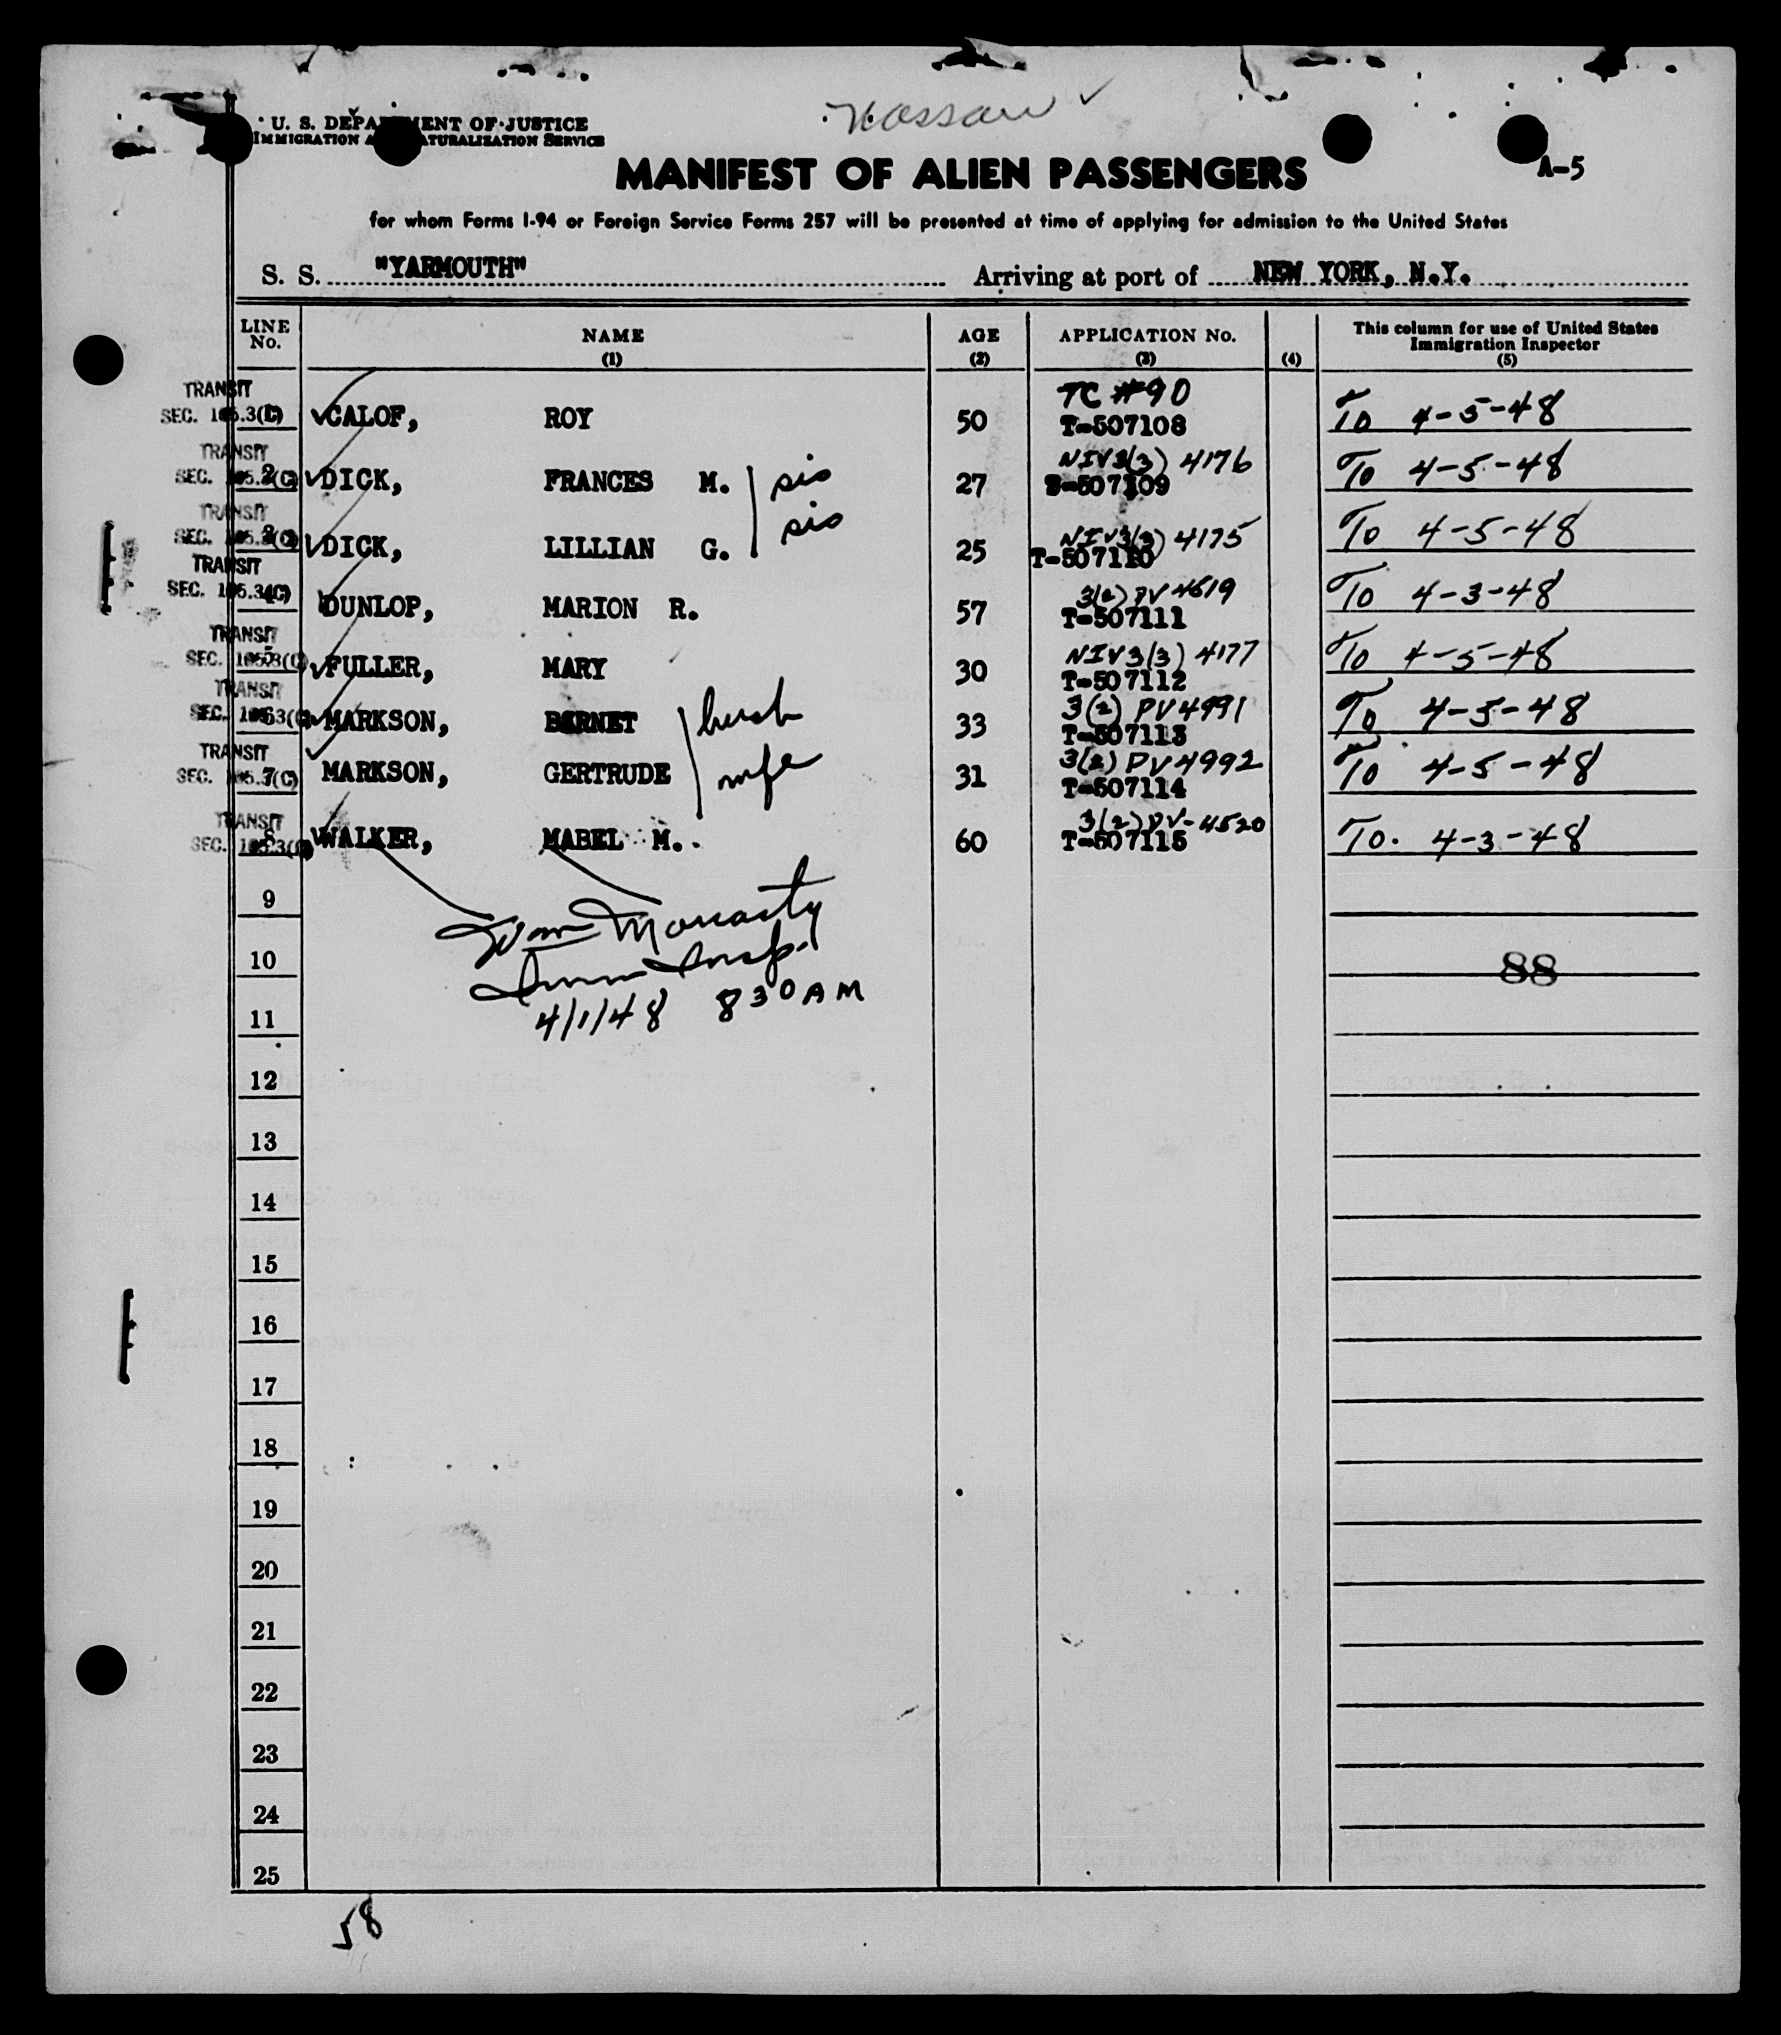 Nassau ✓
U. S. DEPARTMENT OF JUSTICE
IMMIGRATION AND NATURALIZATION SERVICE
MANIFEST OF ALIEN PASSENGERS
A-5
for whom Forms I-94 or Foreign Service Forms 257 will be presented at time of applying for admission to the United States
S. S. "YARMOUTH" Arriving at port of NEW YORK, N.Y.
LINE No. NAME (1) AGE (2) APPLICATION No. (3) (4) This column for use of United States Immigration Inspector (5)
TRANSIT TC #90
SEC. 105.3(C) CALOF, ROY 50 T-507108 To 4-5-48
TRANSIT NIV 3(3) 4176
SEC. 105.3(C) 2 DICK, FRANCES M. sis 27 T-507109 To 4-5-48
TRANSIT NIV 3(3) 4175
SEC. 105.3(C) 3 DICK, LILLIAN G. sis 25 T-507110 To 4-5-48
TRANSIT 3(2) PV 4619
SEC. 105.3(C) 4 DUNLOP, MARION R. 57 T-507111 To 4-3-48
TRANSIT NIV 3(3) 4177
SEC. 105.3(C) 5 FULLER, MARY 30 T-507112 To 4-5-48
TRANSIT 3(2) PV 4991
SEC. 105.3(C) 6 MARKSON, BARNET husb 33 T-507113 To 4-5-48
TRANSIT 3(2) PV 4992
SEC. 105.3(C) 7 MARKSON, GERTRUDE wife 31 T-507114 To 4-5-48
TRANSIT 3(2) PV-4520
SEC. 105.3(C) 8 WALKER, MABEL M. 60 T-507115 To. 4-3-48
9
Wm Moriarty
10 88
Imm Insp.
4/1/48 8 30 AM
11
12
13
14
15
16
17
18
19
20
21
22
23
24
25
58